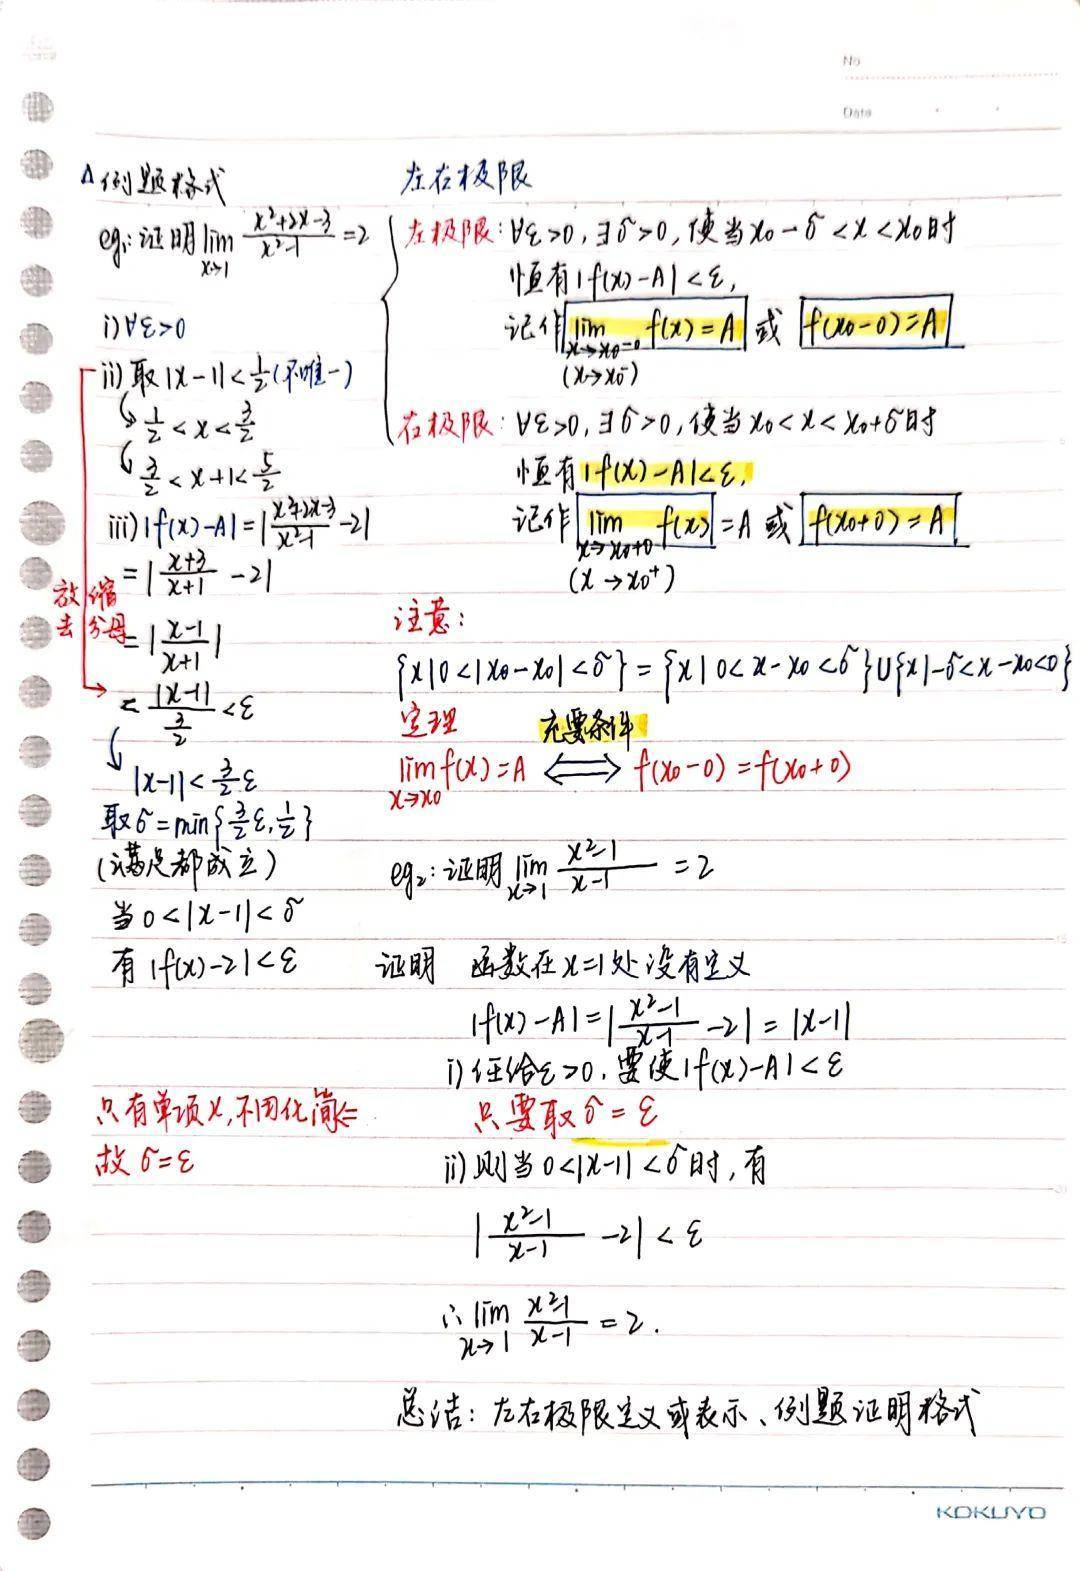 No
Date
Δ例题格式
eg₁:证明 lim x→1 (x²+2x-3)/(x²-1) =2
i)∀ε>0
ii)取|x-1|<1/2(不唯一)
1/2<x<3/2
3/2<x+1<5/2
iii)|f(x)-A|=|(x²+2x-3)/(x²-1)-2|
=|(x+3)/(x+1)-2|
=|(x-1)/(x+1)|
<|x-1|/(3/2)<ε
放缩
去分母
|x-1|<3/2ε
取δ=min{3/2ε,1/2}
(满足都成立)
当0<|x-1|<δ
有|f(x)-2|<ε
只有单项x,不用化简
故δ=ε
左右极限
左极限:∀ε>0,∃δ>0,使当x₀-δ<x<x₀时
恒有|f(x)-A|<ε,
记作 lim x→x₀-0 f(x)=A 或 f(x₀-0)=A
(x→x₀⁻)
右极限:∀ε>0,∃δ>0,使当x₀<x<x₀+δ时
恒有|f(x)-A|<ε,
记作 lim x→x₀+0 f(x)=A 或 f(x₀+0)=A
(x→x₀⁺)
注意:
{x|0<|x₀-x₀|<δ}={x|0<x-x₀<δ}∪{x|-δ<x-x₀<0}
定理 充要条件
lim x→x₀ f(x)=A ⟺ f(x₀-0)=f(x₀+0)
eg₂:证明 lim x→1 (x²-1)/(x-1) =2
证明 函数在x=1处没有定义
|f(x)-A|=|(x²-1)/(x-1)-2|=|x-1|
i)任给ε>0,要使|f(x)-A|<ε
只要取δ=ε
ii)则当0<|x-1|<δ时,有
|(x²-1)/(x-1)-2|<ε
∴lim x→1 (x²-1)/(x-1)=2.
总结:左右极限定义或表示、例题证明格式
KOKUYO